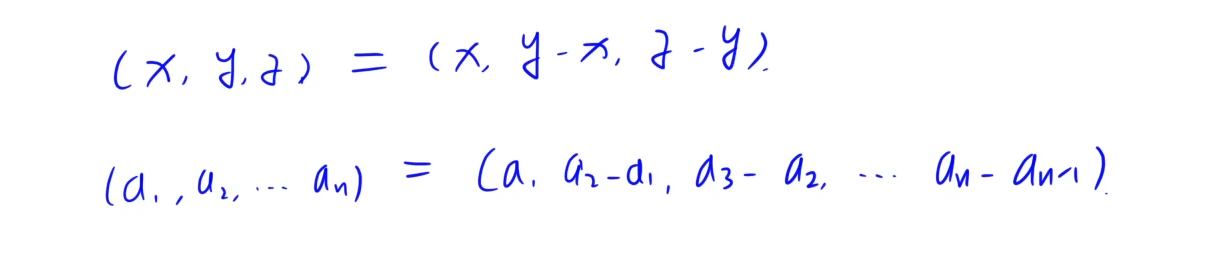 (x, y, z) = (x, y-x, z-y).
(a₁, a₂, ... aₙ) = (a₁ a₂-a₁, a₃-a₂, ... aₙ-aₙ₋₁).